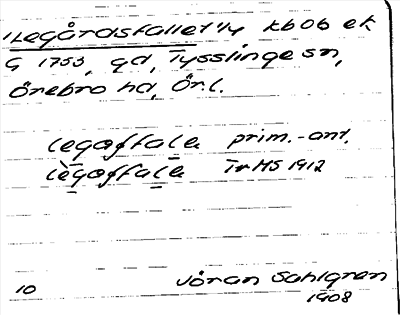 "Legårdsfallet"/y kbob ek
G 1755, gd, Tysslinge sn,
Örebro hd, Ör.l.
legoffale prim.-ant.
lègoffale TrHS 1912
10
Jöran Sahlgren
1908